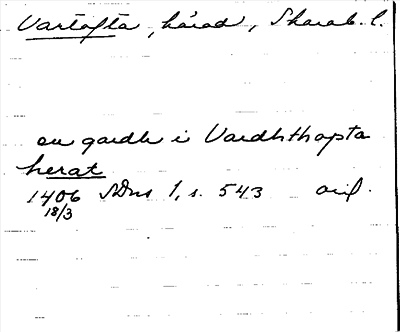 Vartofta, härad, Skarab. l.
en gardh i Vardhthopta
herat
1406 SDns 1, s. 543 orig.
18/3